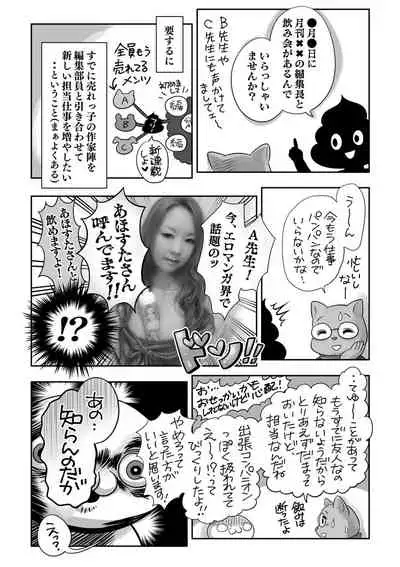 ●月●日に
月刊✖✖の編集長と
飲み会があるんで
いらっしゃい
ませんか?
B先生や
C先生にも声かけて
ましてェ〜
要するに
全員もう
売れてる
メンツ
A
B
C
新連載
すでに売れっ子の作家陣を
編集部員と引き合わせて
新しい担当仕事を増やしたい
‥ということ(まぁよくある)
うーん
忙しい
しな〜
今もう仕事
パンパンなので
いらないかな〜
A先生!
今、エロマンガ界で
話題のッ
あほすたさん
呼んでます!!
あほすたさんと
飲めますよー!
!?
ドンッ!!
‥てゆーことがあって
もうすでに友人なの
知らないようだから
とりあえずだまって
おいたけど、
担当なんだね
飲みは
断ったよ
お…
おせっかいかも
しれないけど心配!
出張コンパニオン
っぽく扱われてて
え〜!?って
びっくりしたよ!!
やめろって
言った方が
いいと思います!
あの…
知らんのだが
えっ?